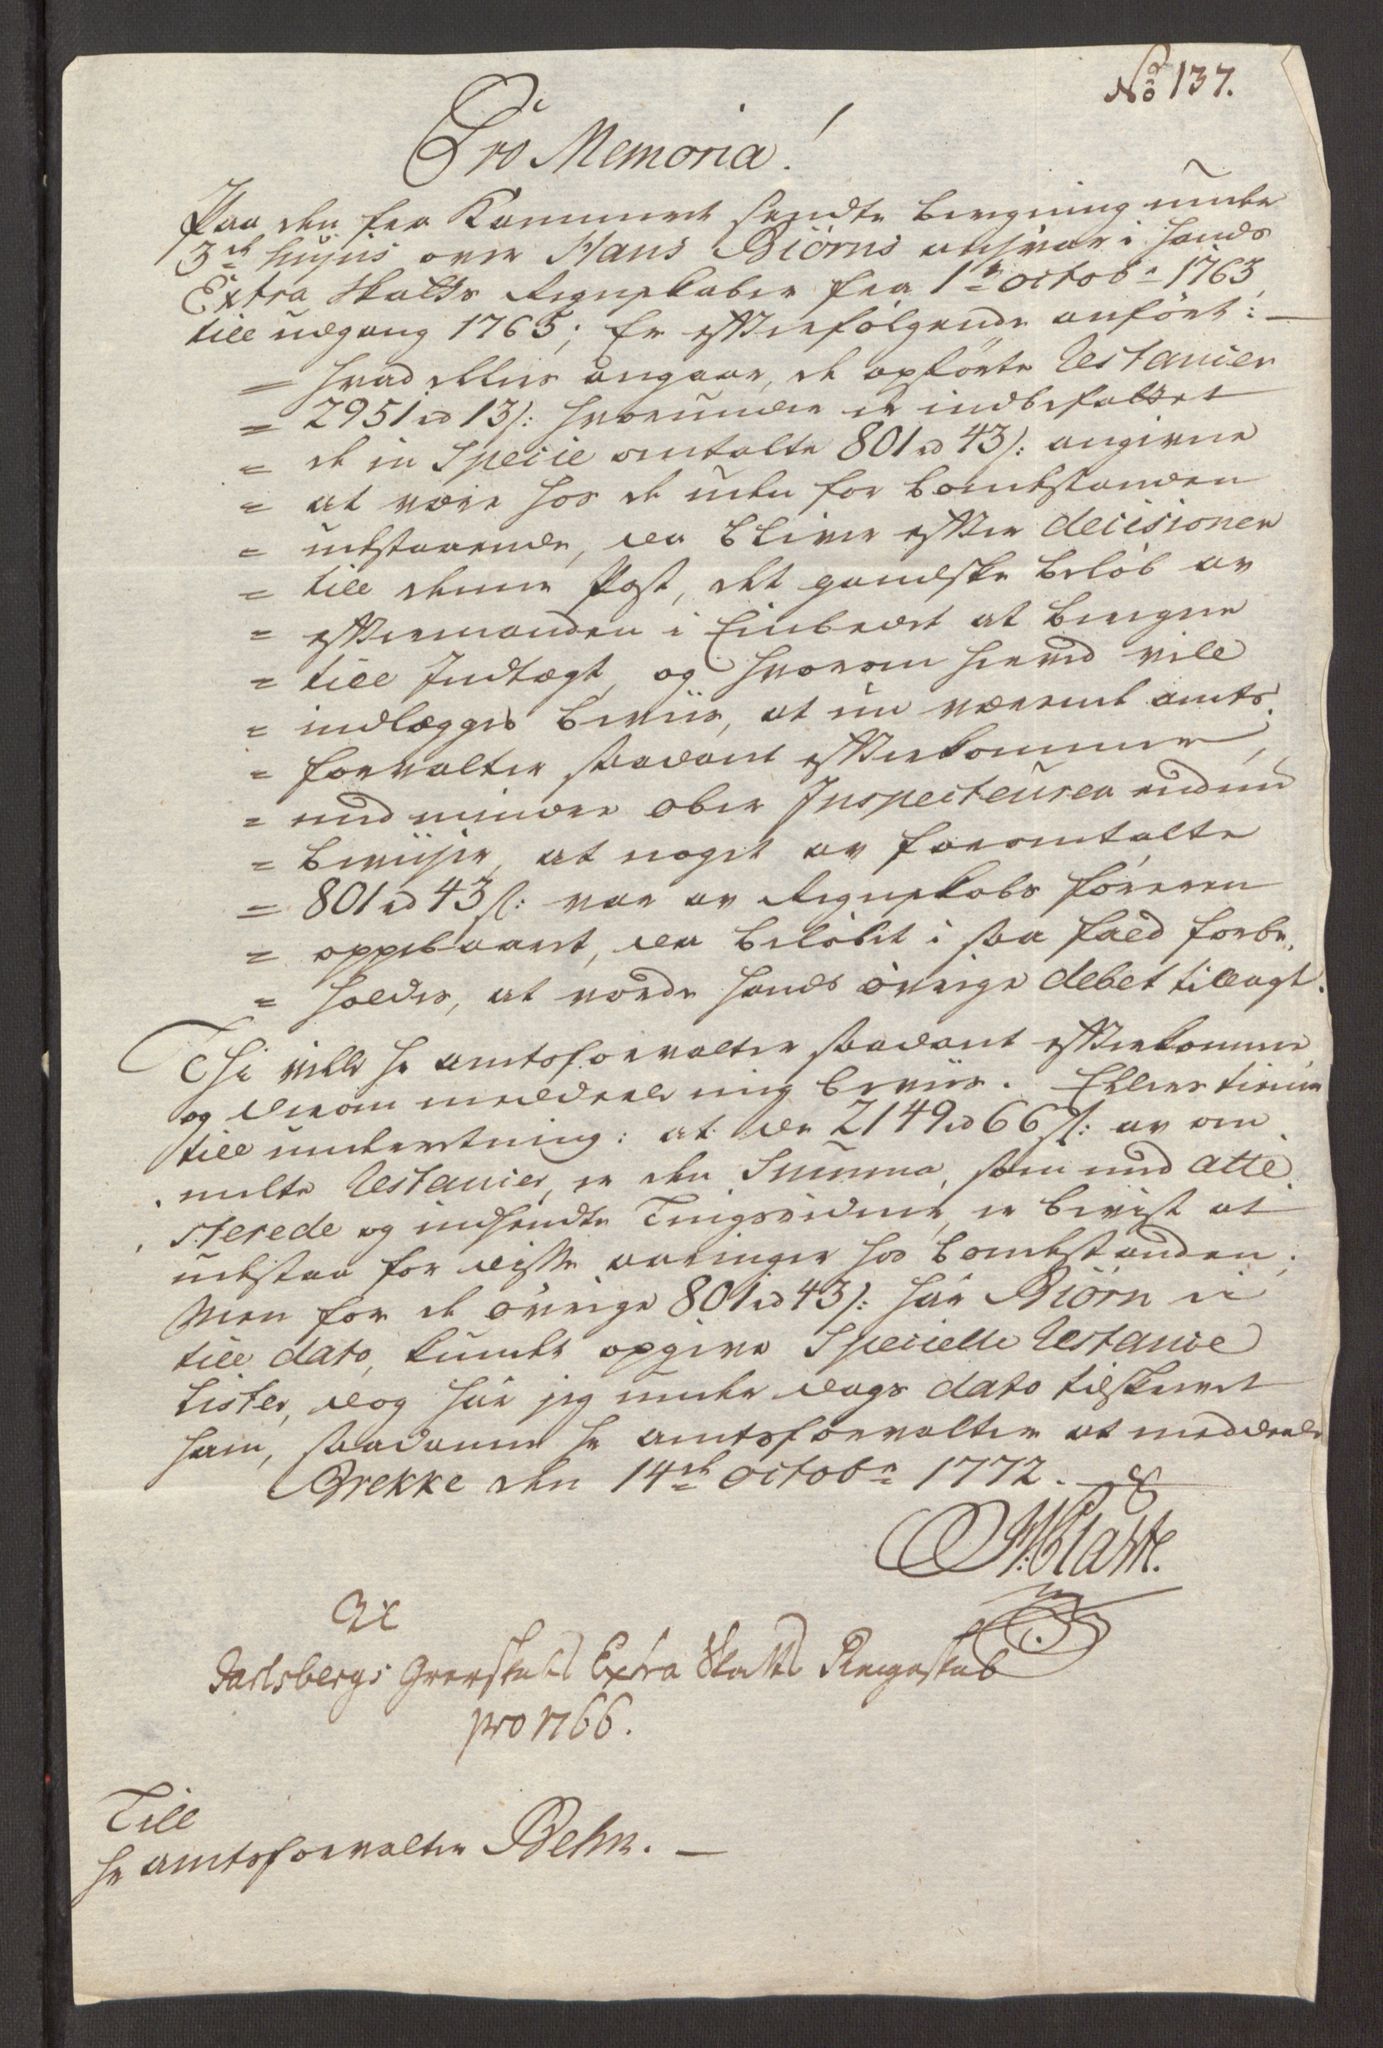 No 137.
Pro Memoria!
Paa den fra Kammeret sendte beregning under
3de hujus over Hans Biörns ansvar i hands
Extra Skatts Regnskaber fra 1te octobr 1763
till udgang 1765; Er efterfölgende anfört:
= hvad ellers angaar, de opförte Restancer
= 2951 rd 13 s: hvorunder er indbefattet
= de in Specie omtalte 801 rd 43 s: angivne
= at være hos de uden for bondestanden
= udestaaende, da bliver efter decisionen
= till denne Post, det gandske belöb av
= eftermanden i Embedet at beregne
= till Indtægt, og hvorom herved vill
= indlægges beviis, at nu værende amts-
= forvalter saadant efterkommer,
= med mindre ober Inspecteuren endnu
= beviiser, at noget av foromtalte
= 801 rd 43 s: var av Regnskabs föreren
= oppebaaret, da belöbet i saa fald forbe-
= holdes, at vorde hands övrige debet tillagt.
Thi ville hr amtsforvalter saadant efterkomme
og derom meddeele mig beviis. Ellers tiener
till underretning: at de 2149 rd 66 s: av om-
melte Restancer, er den Summa, som med atte-
sterede og indsendte Tingsvidner, er beviist at
udestaa for disse aaringer hos bondestanden;
Men for de övrige 801 rd 43 s: har Biörn ei
till dato, kundet opgive Specielle Restance
Lister, dog har jeg under dags dato tilskrevet
ham, saadanne hr amtsforvalter at meddeele
Brekke den 14de octobr 1772.
Til
Jarlsbergs Grevskabs Extra Skatts Regnskab
pro 1766.
Till
hr amtsforvalter Behn.